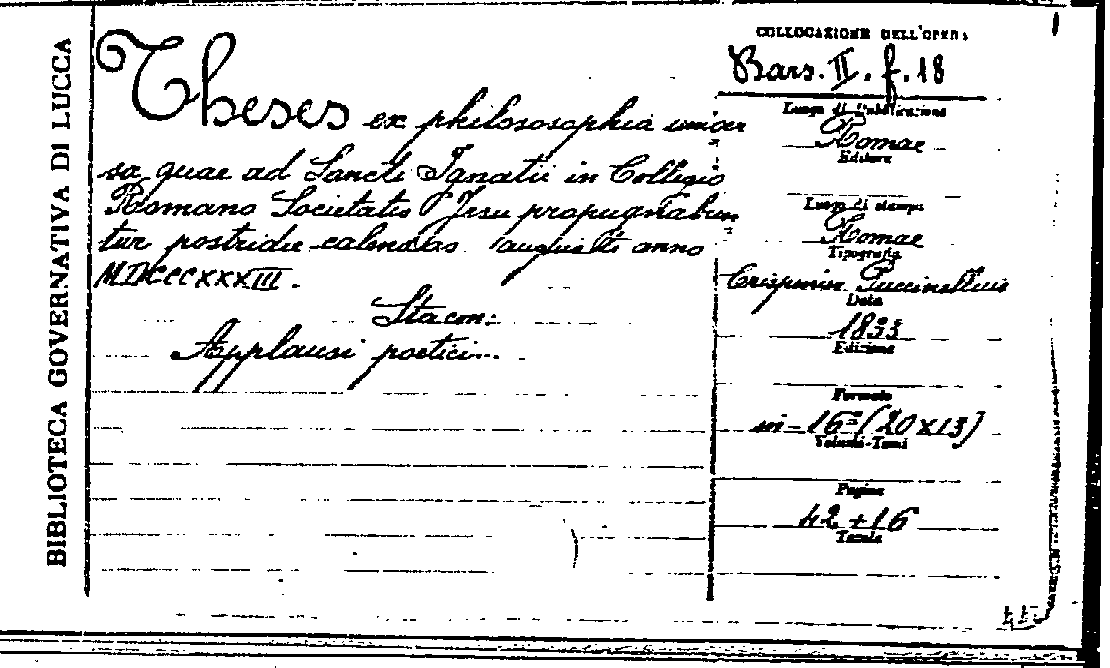 BIBLIOTECA GOVERNATIVA DI LUCCA
Theses ex philososophia univer
sa quae ad Sancti Ignatii in Collegio
Romano Societatis Jesu propugnabun
tur postridie calendas augusti anno
MDCCCXXXIII.
Sta con:
Applausi poetici...
COLLOCAZIONE DELL'OPERA
Bars. II. f. 18
Luogo di Pubblicazione
Romae
Editore
Luogo di stampa
Romae
Tipografia
Crispinus Puccinellius
Data
1833
Edizione
Formato
in-16º (20x13)
Volumi-Tomi
Pagine
42 + 16
Tavole